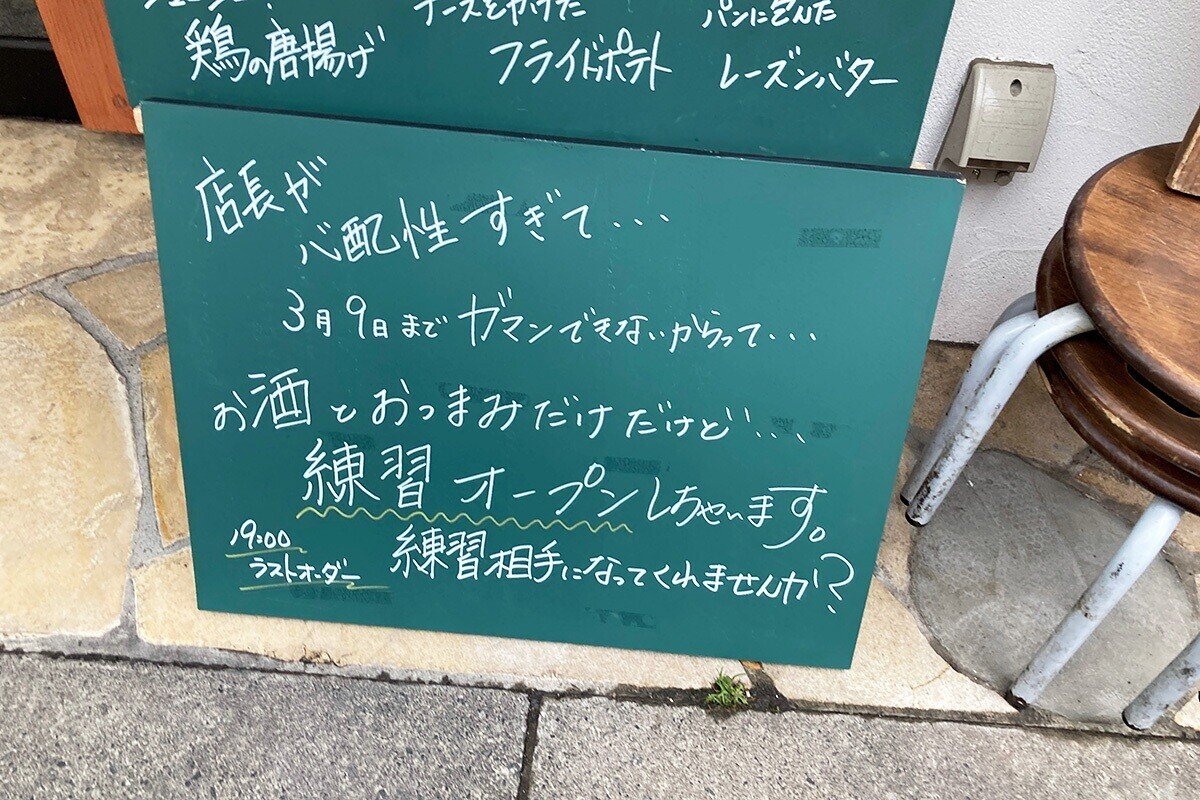 鶏の唐揚げ
フライドポテト
レーズンバター
パンに包んだ
店長が
心配性すぎて・・・
3月9日までガマンできないからって・・・
お酒とおつまみだけだけど・・・
練習オープンしちゃいます。
19:00
ラストオーダー
練習相手になってくれませんか?